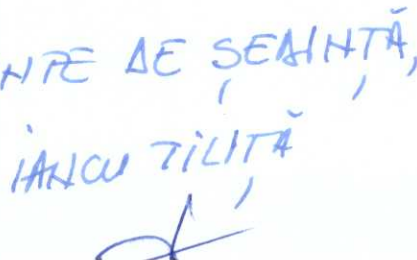 NTE DE ȘEDINȚĂ,
IANCU TILIȚĂ